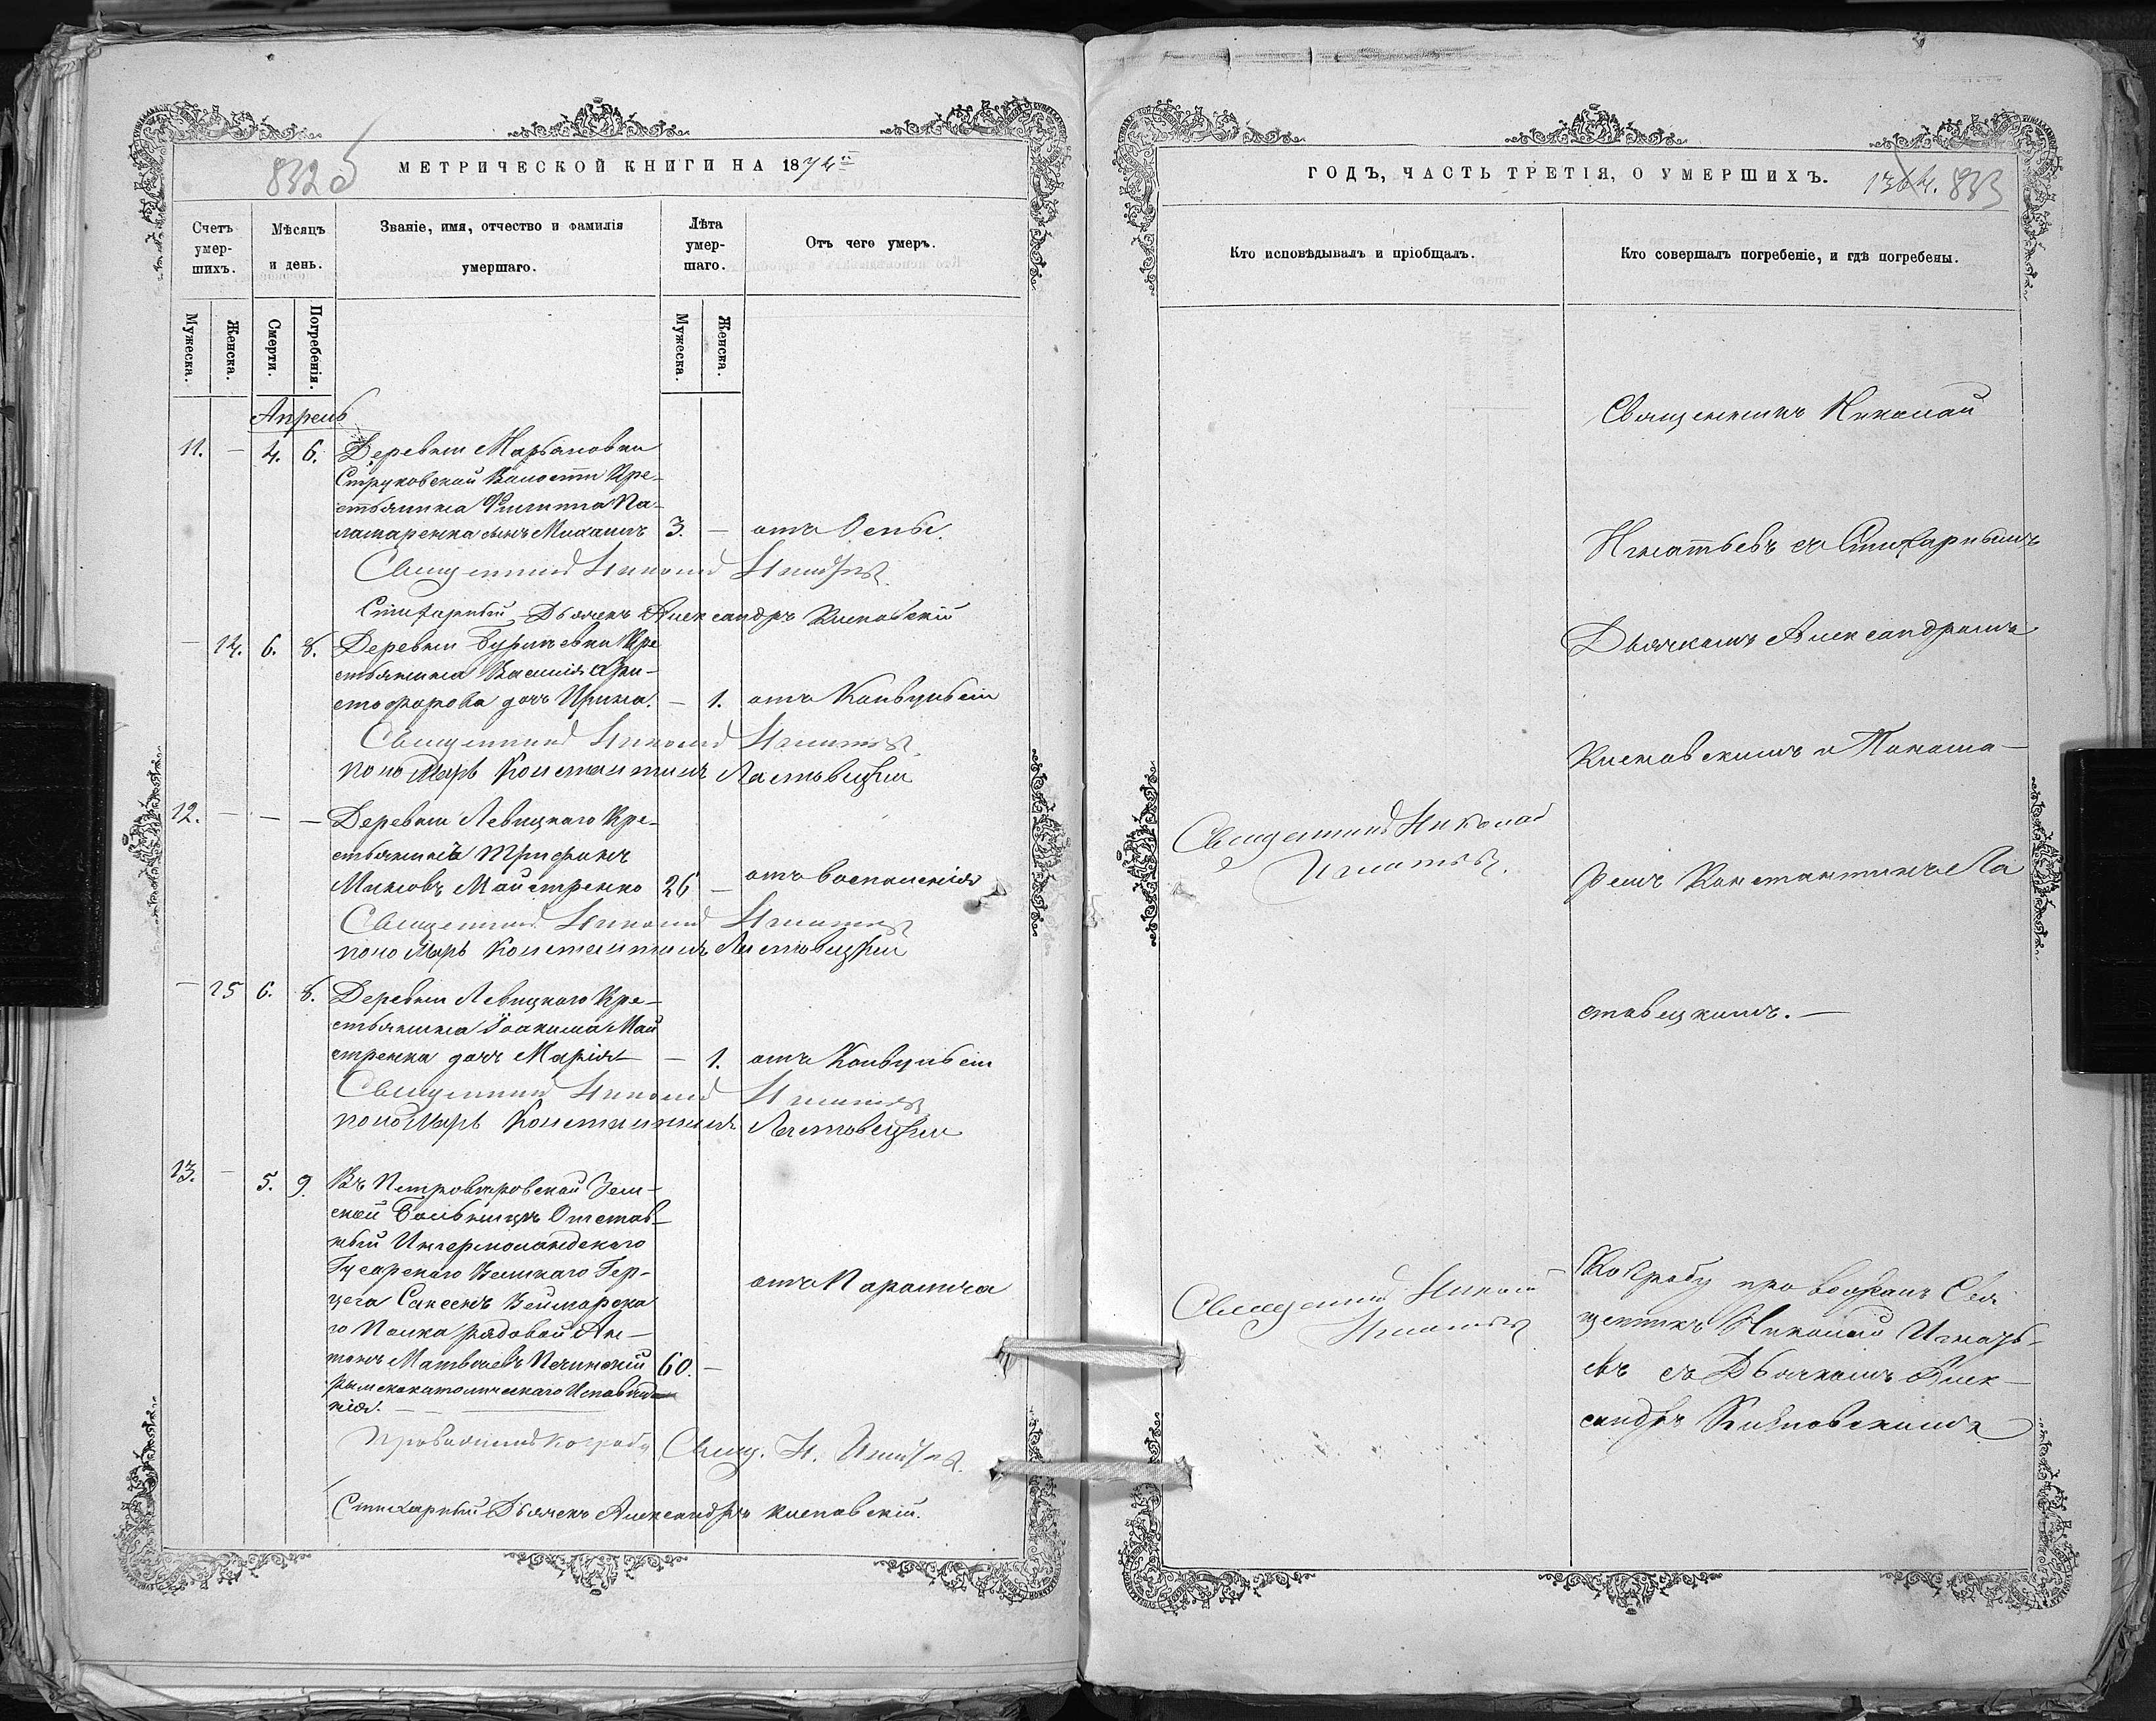 832 б
МЕТРИЧЕСКОЙ КНИГИ НА 1874й
Счетъ умер-шихъ.
Мѣсяцъ и день.
Званіе, имя, отчество и фамилія умершаго.
Лѣта умер-шаго.
Отъ чего умеръ.
Мужеска.
Женска.
Смерти.
Погребенія.
Мужеска.
Женска.
Апрель
11. — 4. 6. Деревни Марьяновки
Струковской Волости Кре-
стьянина Филиппа Па-
ламаренка сынъ Михаилъ 3. — отъ Оспы.
Священникъ Николай Игнатьев
Стихарный Дьячекъ Александръ Кисловскій
— 14. 6. 8. Деревни Кре
стьянина Василія Хри-
стофорова дочь Ирина. — 1. отъ Конвульсіи
Священникъ Николай Игнатьев
пономарь Константинъ Ластовецкии
12. — — — Деревни Левицкаго Кре-
стьянинъ Трифонъ
Майстренко 26 — отъ воспаленія
Священникъ Николай Игнатьев
пономарь Константинъ Ластовецкии
— 15 6. 8. Деревни Левицкаго Кре-
стьянина Іоакима Май
стренка дочь Марія — 1. отъ Конвульсіи
Священникъ Николай Игнатьев
пономарь Константинъ Ластовецкии
13. — 5. 9. Въ Петровѣровской Зем-
ской больницѣ Отстав-
ный Ингермоландскаго
Гусарскаго Великаго Гер-
цега Саксенъ Веймарска
го Полка рядовой Ан-
тонъ Матвѣевъ 60. — отъ Паралича
Римскокатолическаго Исповѣда
нія.
Провожалъ ко гробу Свящ. Н. Игнатьев.
Стихарный Дьячекъ Александръ Кисловскій.
ГОДЪ, ЧАСТЬ ТРЕТІЯ, О УМЕРШИХЪ.
833
Кто исповѣдывалъ и пріобщалъ.
Кто совершалъ погребеніе, и гдѣ погребены.
Священникъ Николай
Игнатьевъ со Стихарнымъ
Дьячкомъ Александромъ
Кисловскимъ и Понома-
ремъ Константинъ Ла
стовецкимъ. —
Священникъ Николай
Игнатьев.
Священникъ Николай
Игнатьев
Ко гробу провожалъ Свя
щенникъ Николай Игнать-
евъ съ Дьячкомъ Алек-
сандръ Кисловскимъ